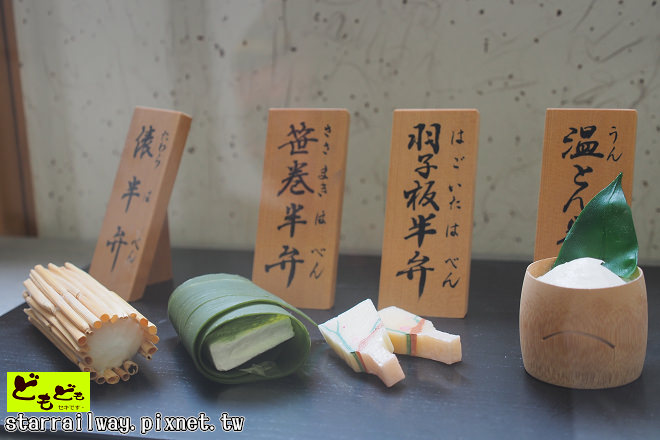 俵半弁
たわら は べん
笹巻半弁
ささ まき は べん
羽子板半弁
はごいた は べん
温とん
うん
どもども
セキです
starrailway.pixnet.tw